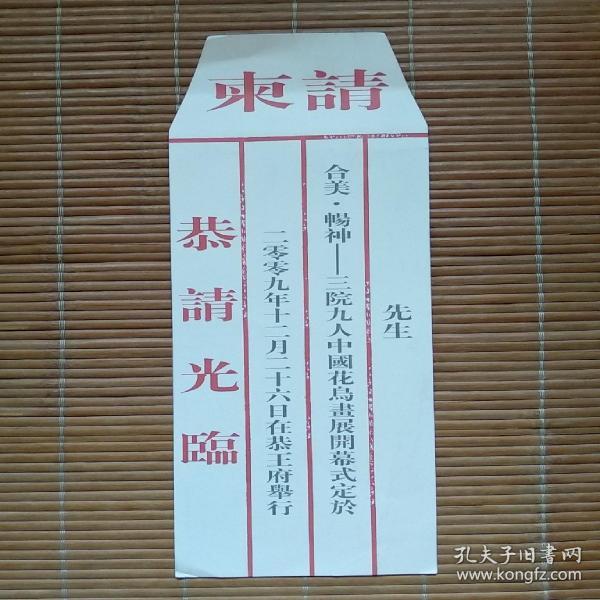 請柬
先生
合美·暢神——三院九人中國花鳥畫展開幕式定於
二零零九年十二月二十六日在恭王府舉行
恭請光臨
孔夫子旧書网
www.kongfz.com